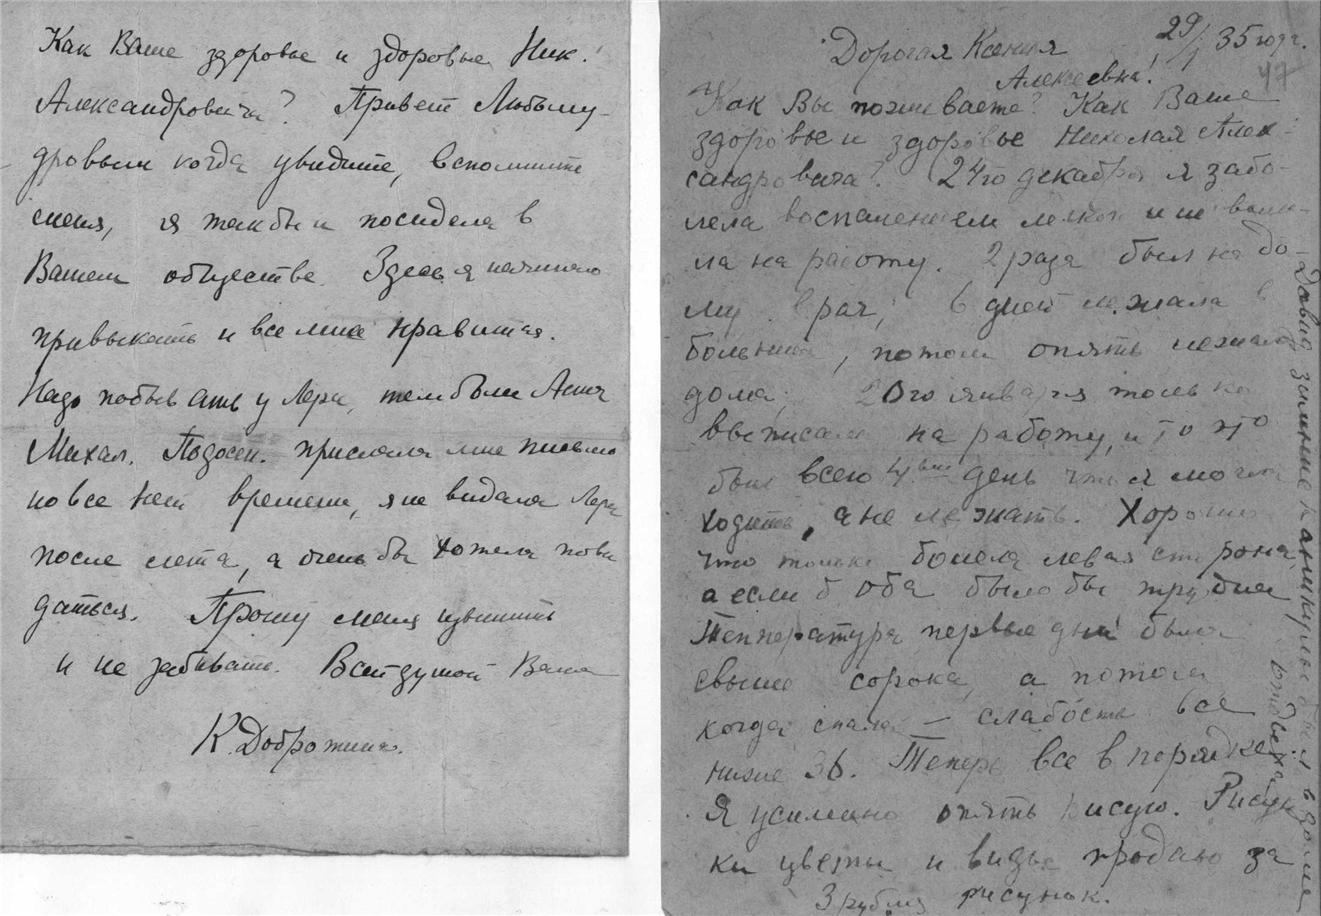 Как Ваше здоровье и здоровье Ник.
Александровича? Привет Любому-
дровым когда увидите, вспомните
меня, я так бы и посидела в
Вашем обществе. Здесь я начинаю
привыкать и все мне нравится.
Надо побывать у Леры, там были Анна
Михал. Подосен. прислала мне письмо
но все нет времени, я не видала Леры
после лета, а очень бы хотела пови
даться. Прошу меня извинить
и не забывать. Всей душой Ваша
К. Доброжин.
29/I 35 года.
47
Дорогая Ксения
Алексеевна!
Как Вы поживаете? Как Ваше
здоровье и здоровье Николая Алек-
сандровича? 24го декабря я забо-
лела воспалением легких и не
ла на работу. 2 раза был на до-
му врач, 6 дней лежала в
больнице, потом опять лежала
дома, 20го января только
выписали на работу, и то это
был всего 4ый день что я могла
ходить, а не лежать. Хорошо
что только болела левая сторона,
а если б оба было бы труднее
Температура первые дни была
свыше сорока, а потом
когда спала – слабость все
ниже 36. Теперь все в порядке
Я усиленно опять рисую. Рисун
ки цветы и виды продаю за
3 рубля рисунок.
Давид зимние каникулы был в доме
отдыха